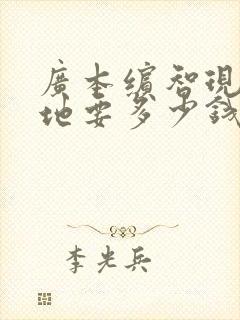 廣本繽智現
地要多少錢
李光兵